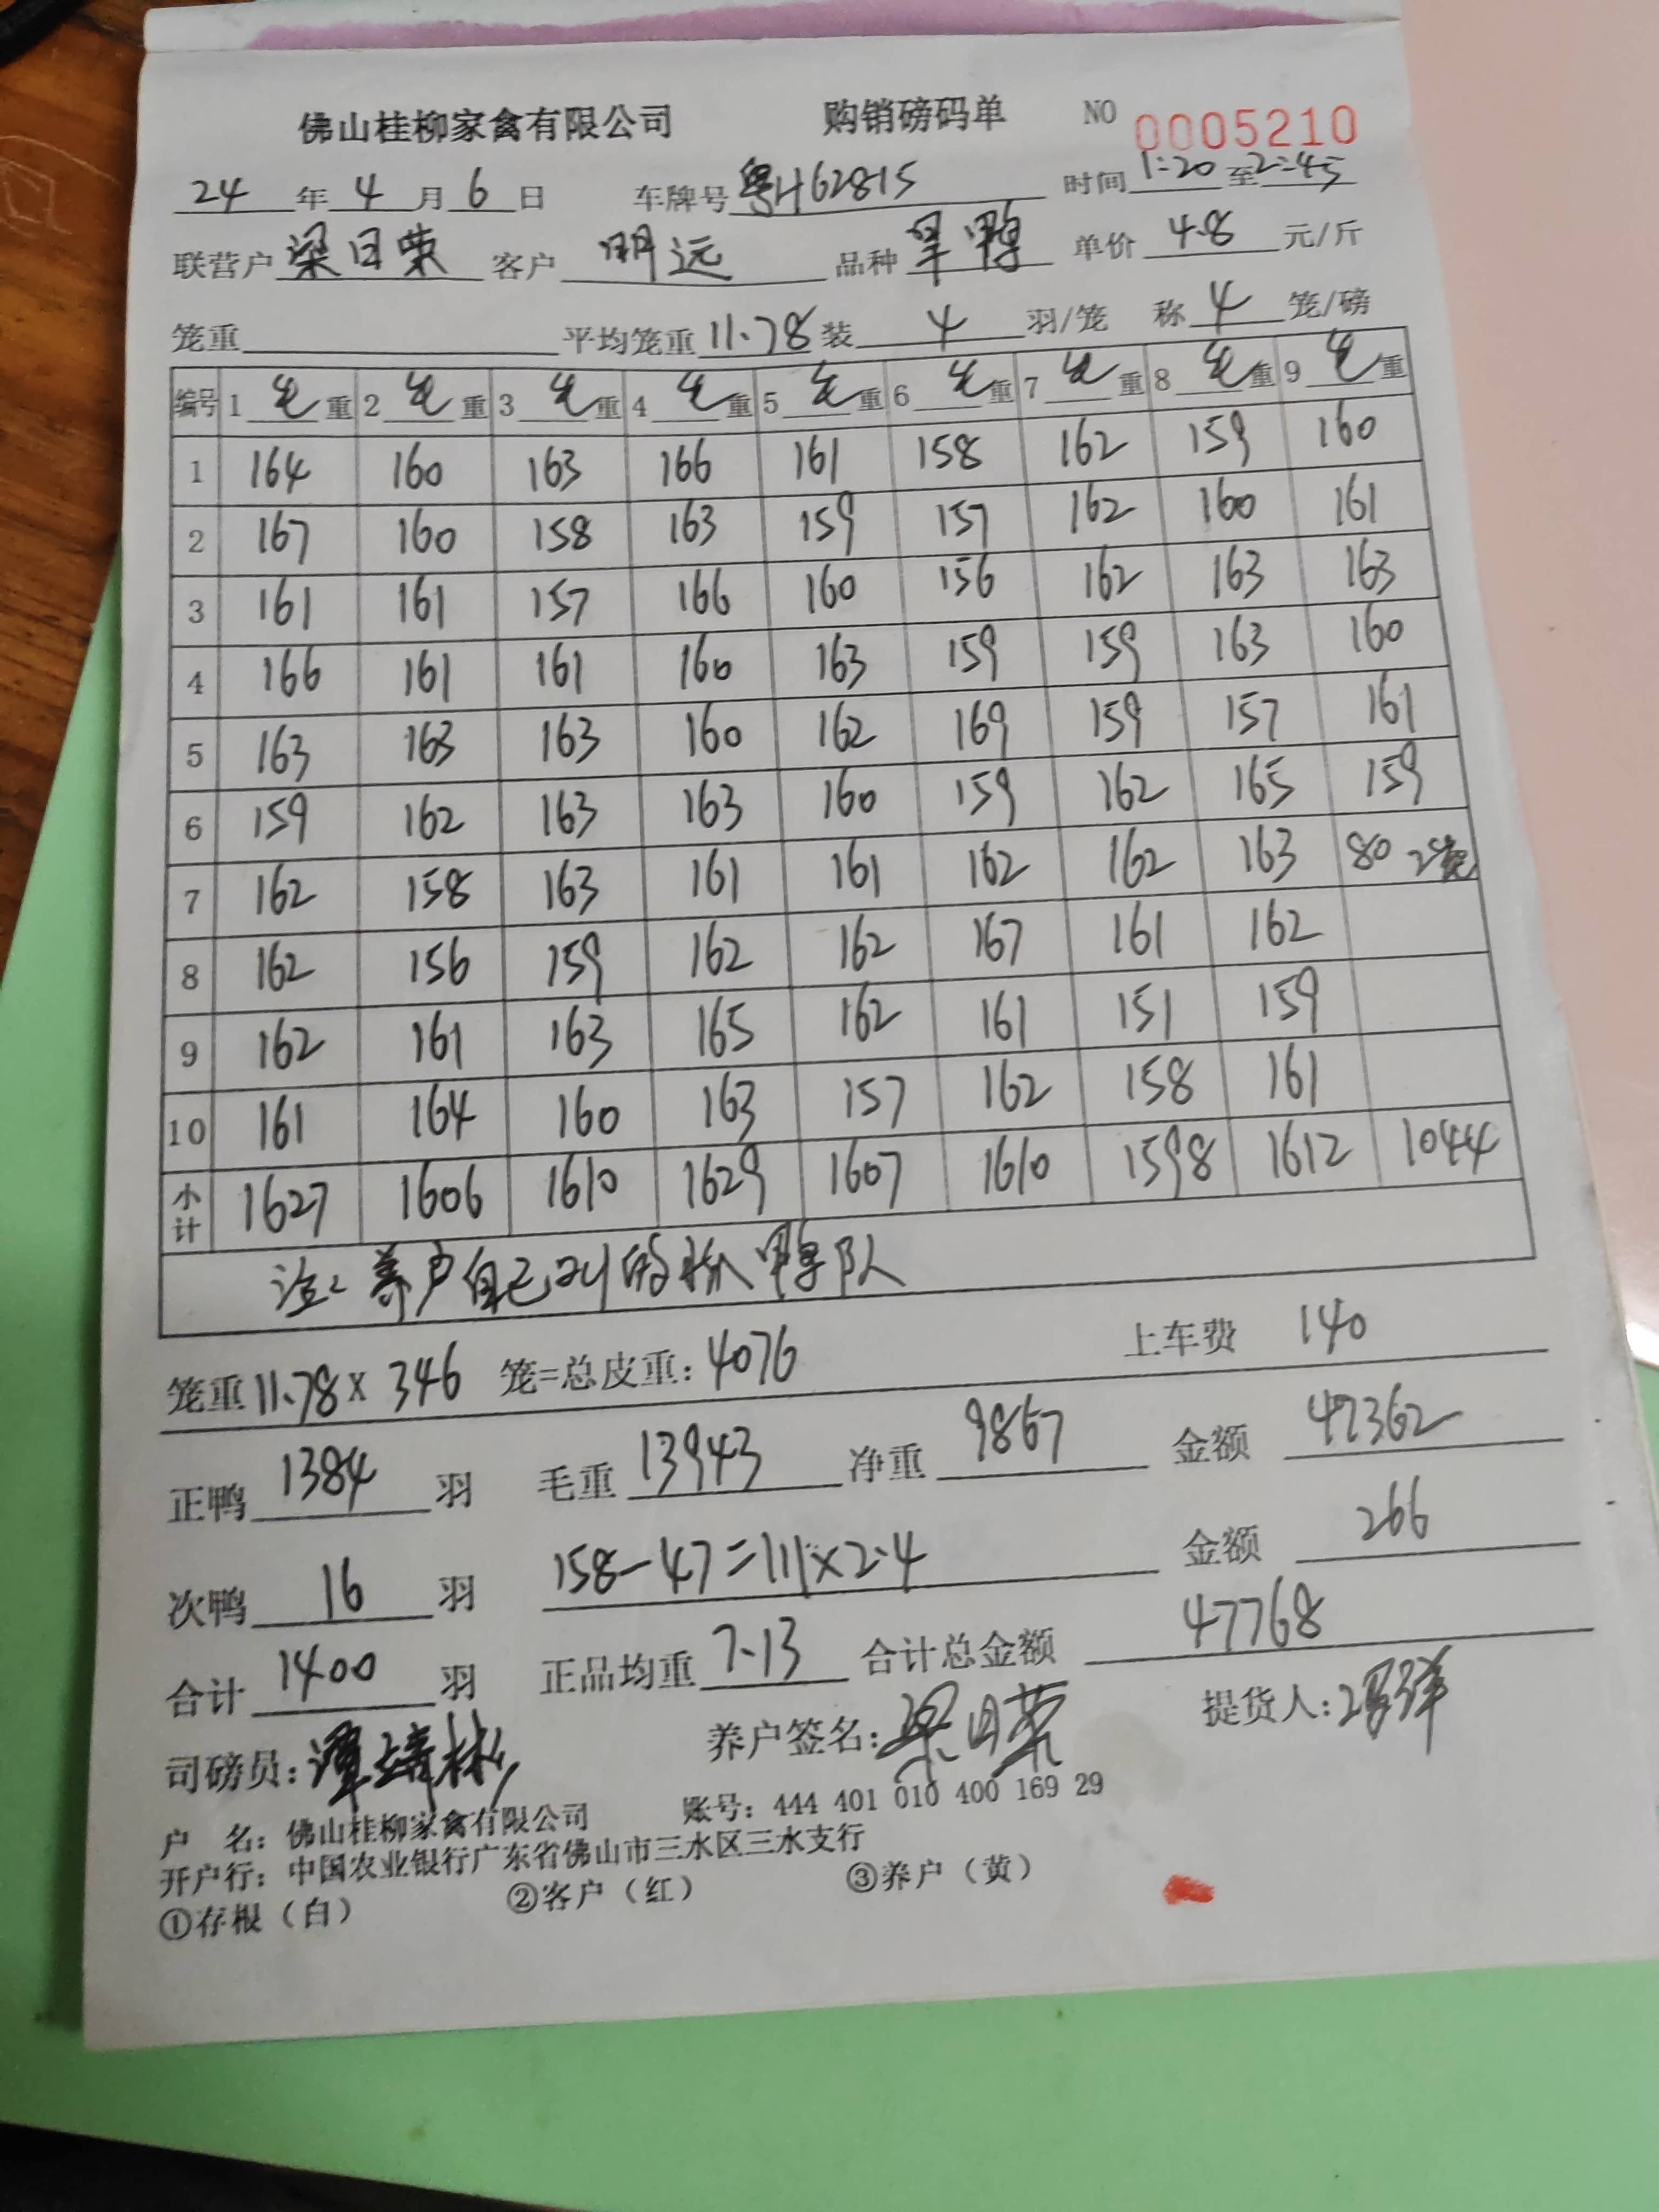 佛山桂柳家禽有限公司 购销磅码单 NO 0005210
24 年 4 月 6 日 车牌号 粤H62815 时间 1:20 至 2:45
联营户 梁日荣 客户 明远 品种 鸭 单价 4.8 元/斤
笼重 平均笼重 11.78 装 4 羽/笼 称 4 笼/磅
编号 1 毛 重 2 毛 重 3 毛 重 4 毛 重 5 毛 重 6 毛 重 7 毛 重 8 毛 重 9 毛 重
1 164 160 163 166 161 158 162 159 160
2 167 160 158 163 159 157 162 160 161
3 161 161 157 166 160 156 162 163 163
4 166 161 161 160 163 159 159 163 160
5 163 163 163 160 162 169 159 157 161
6 159 162 163 163 160 159 162 165 159
7 162 158 163 161 161 162 162 163 80 2笼
8 162 156 159 162 162 167 161 162
9 162 161 163 165 162 161 151 159
10 161 164 160 163 157 162 158 161
小计 1627 1606 1610 1629 1607 1610 1598 1612 1044
注: 养户自己叫的抓鸭队
笼重 11.78 x 346 笼=总皮重: 4076 上车费 140
正鸭 1384 羽 毛重 13943 净重 9867 金额 47362
次鸭 16 羽 158-47=111×2.4 金额 266
合计 1400 羽 正品均重 7.13 合计总金额 47768
司磅员: 养户签名: 梁日荣 提货人:
户 名: 佛山桂柳家禽有限公司 账号: 444 401 010 400 169 29
开户行: 中国农业银行广东省佛山市三水区三水支行
①存根（白） ②客户（红） ③养户（黄）